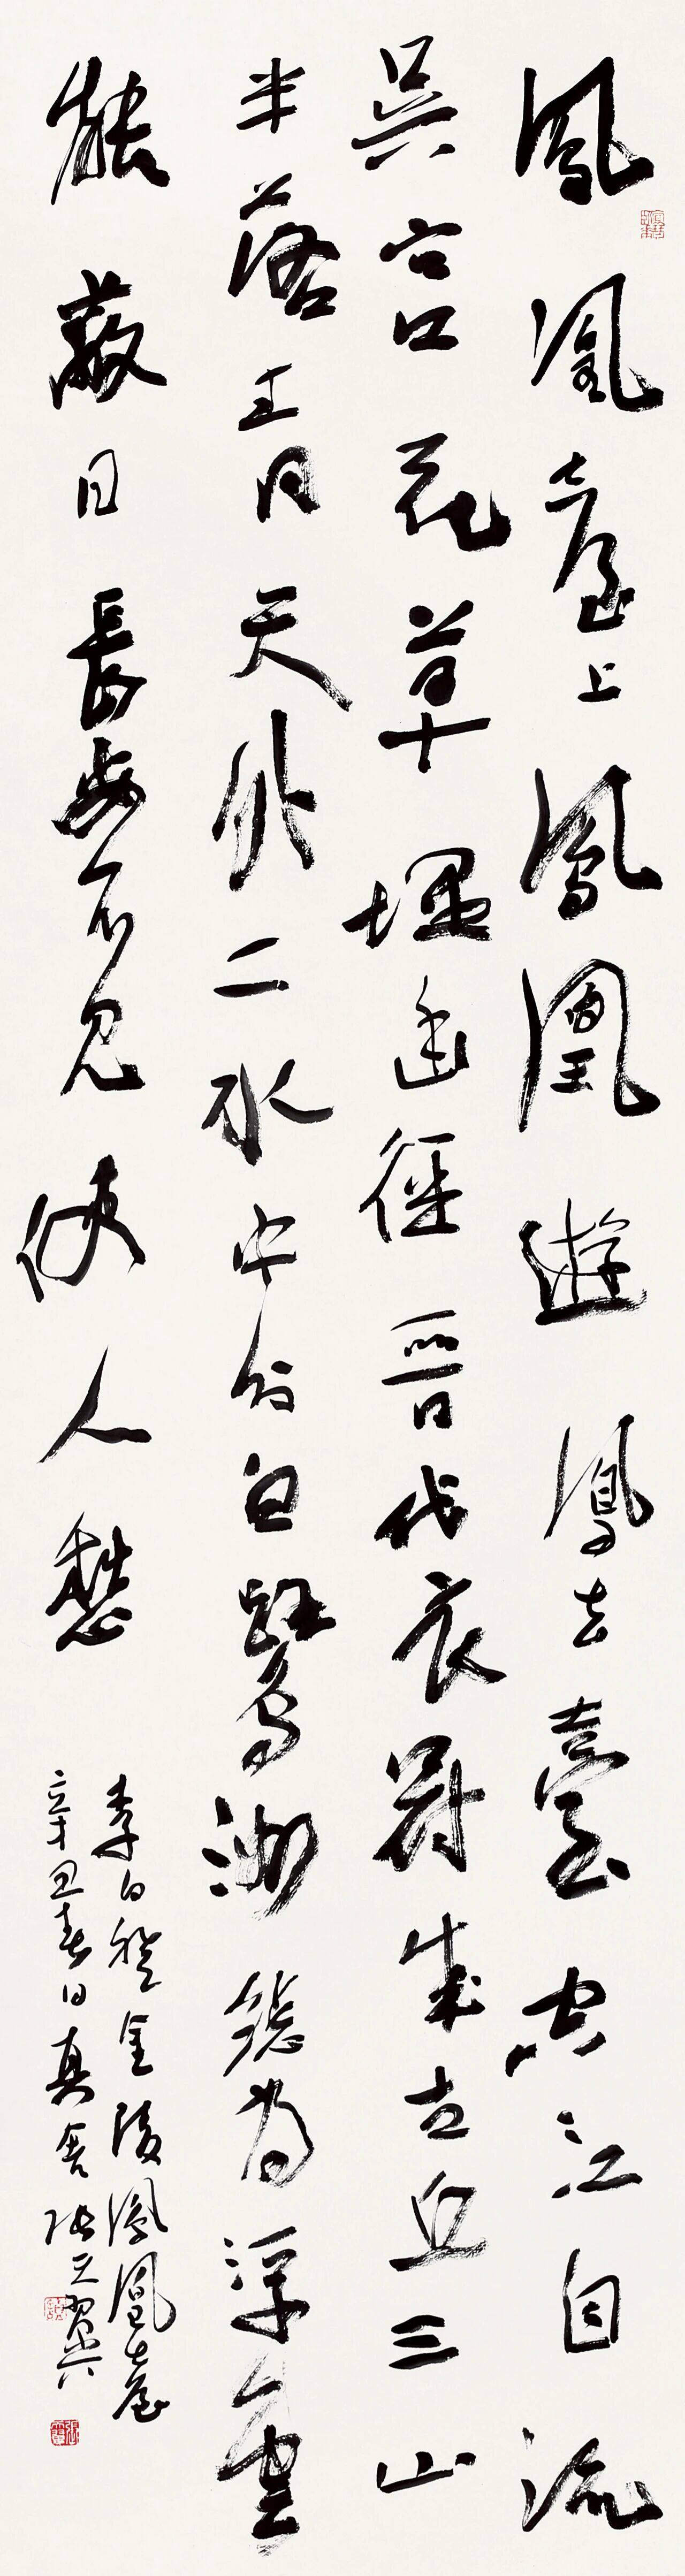 鳳凰臺上鳳凰遊鳳去臺空江自流
吳宮花草埋幽徑晉代衣冠成古丘三山
半落青天外二水中分白鷺洲總為浮雲
能蔽日長安不見使人愁
李白登金陵鳳凰臺
辛丑春日真舍張天翼